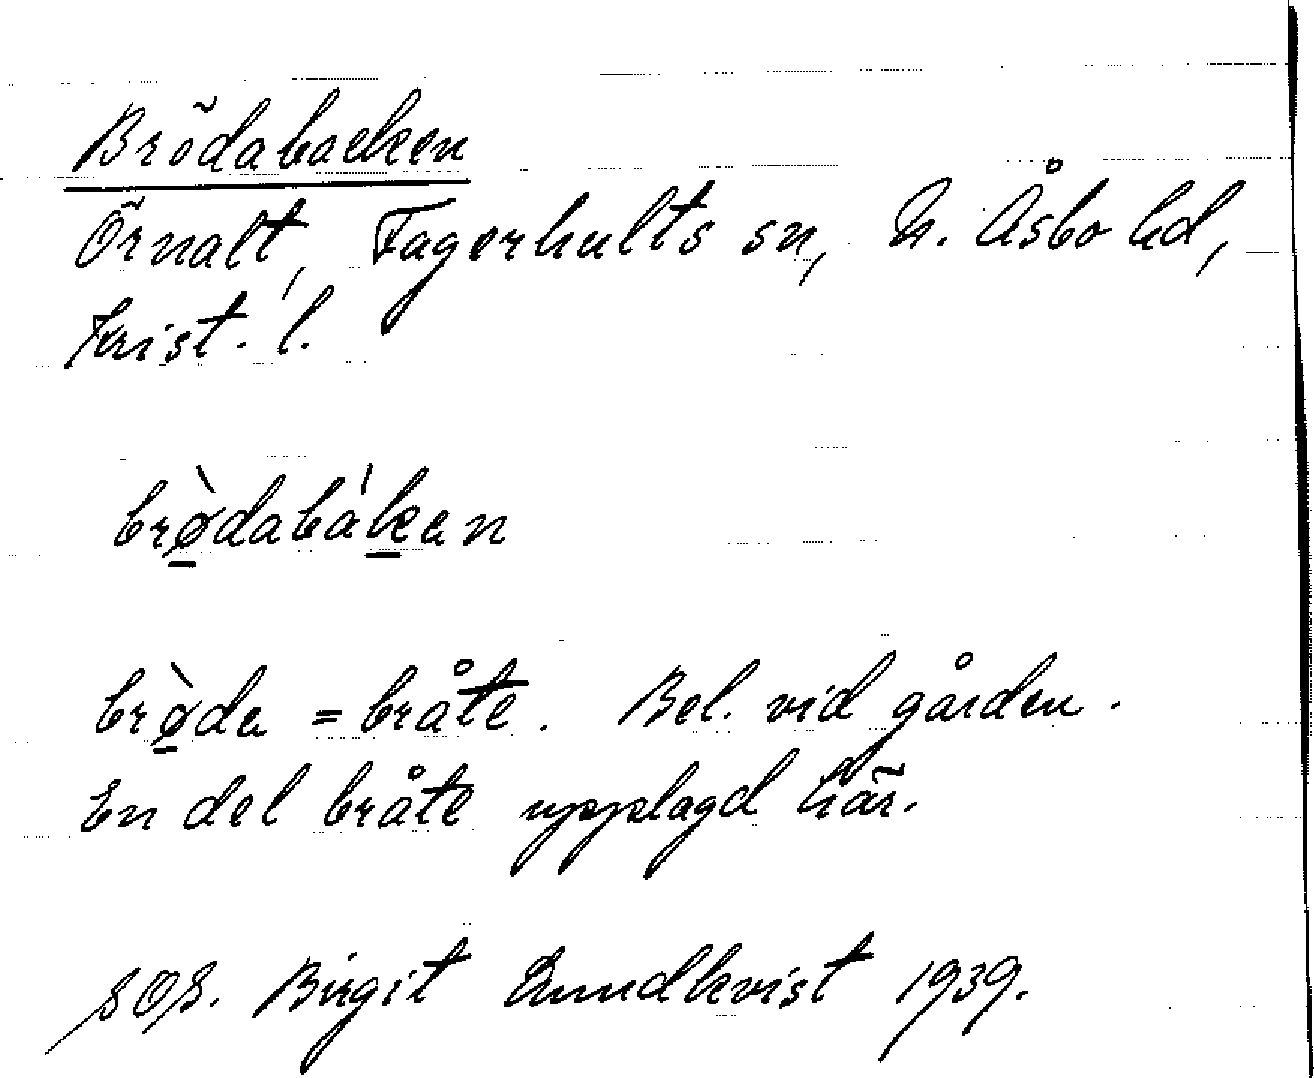 Brödabacken
Örnalt, Fagerhults sn, N. Åsbo hd,
Krist. l.
brø̀dabákan
brø̀da = bråte. Bel. vid gården.
En del bråte upplagd här.
SOS. Birgit Lundkvist 1939.